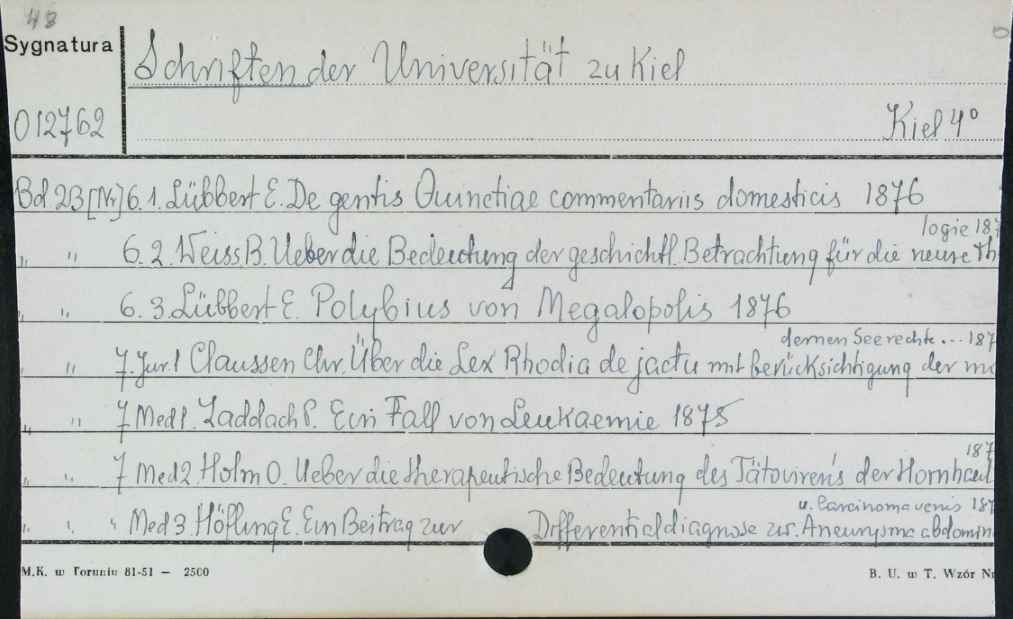 48
Sygnatura
Schriften der Universität zu Kiel
012762
Kiel 4°
Bd 23 [Nr] 6. 1. Lübbert E. De gentis Quinctiae commentariis domesticis 1876
logie 187
„ „ 6. 2. Weiss B. Ueber die Bedeutung der geschichtl. Betrachtung für die neure Th
„ „ 6. 3. Lübbert E. Polybius von Megalopolis 1876
dernen Seerechte... 187
„ „ 7. Jur. 1 Claussen Chr. Über die Lex Rhodia de jactu mit berücksichtigung der mo
„ „ 7 Med 1. Zaddach P. Ein Fall von Leukaemie 1875
187
„ „ 7 Med 2. Holm O. Ueber die therapeutische Bedeutung des Tätovirens der Hornhaut
u. Carcinoma venis 187
„ „ „ Med 3 Höfling E. Ein Beitrag zur Differentialdiagnose zw. Aneurysma abdomin
M.K. w Toruniu 81-51 — 2500
B. U. w T. Wzór Nr